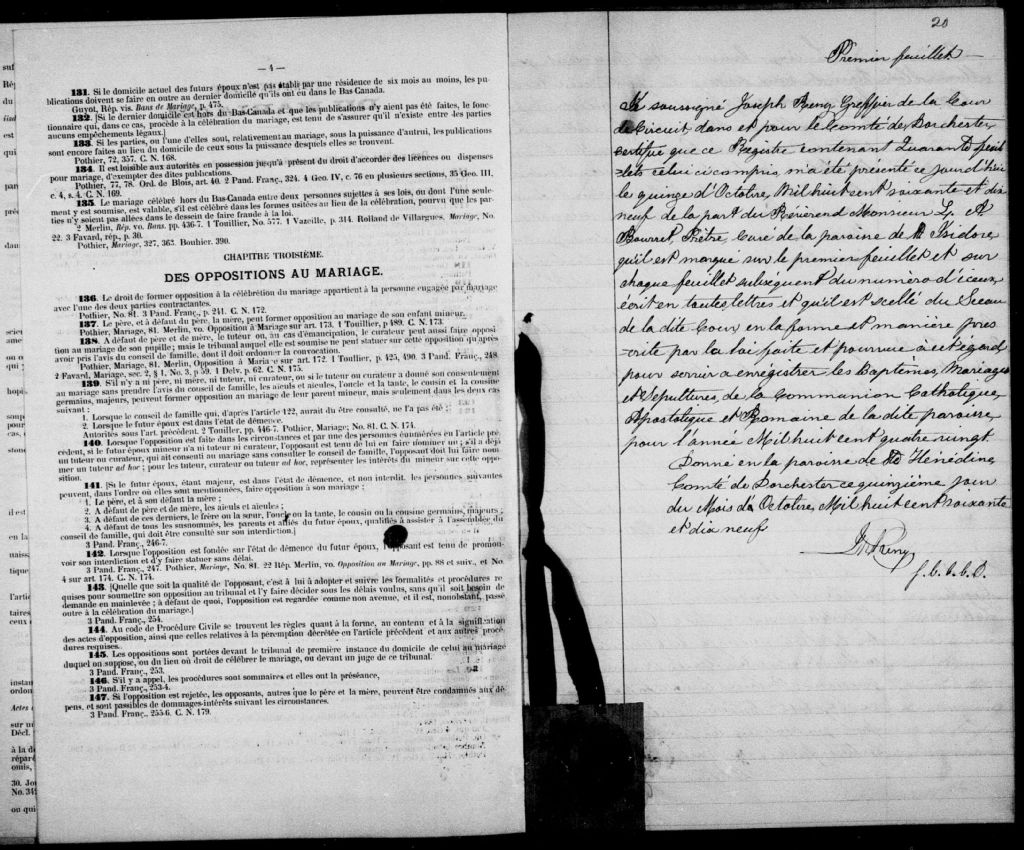 — 4 —
131. Si le domicile actuel des futurs époux n'est pas établi par une résidence de six mois au moins, les pu-
blications doivent se faire en outre au dernier domicile qu'ils ont eu dans le Bas Canada.
Guyot, Rép. vis. Bans de Mariage, p. 475.
132. [Si le dernier domicile est hors du Bas-Canada et que les publications n'y aient pas été faites, le fonc-
tionnaire qui, dans ce cas, procède à la célébration du mariage, est tenu de s'assurer qu'il n'existe entre les parties
aucuns empêchements légaux.]
133. Si les parties, ou l'une d'elles sont, relativement au mariage, sous la puissance d'autrui, les publications
sont encore faites au lieu du domicile de ceux sous la puissance desquels elles se trouvent.
Pothier, 72, 357. C. N. 168.
134. Il est loisible aux autorités en possession jusqu'à présent du droit d'accorder des licences ou dispenses
pour mariage, d'exempter des dites publications.
Pothier, 77, 78. Ord. de Blois, art. 40. 2 Pand. Franç., 324. 4 Geo. IV, c. 76 en plusieurs sections, 35 Geo. III,
c. 4, s. 4. C. N. 169.
135. Le mariage célébré hors du Bas-Canada entre deux personnes sujettes à ses lois, ou dont l'une seule-
ment y est soumise, est valable, s'il est célébré dans les formes usitées au lieu de la célébration, pourvu que les par-
ties n'y soient pas allées dans le dessein de faire fraude à la loi.
2 Merlin, Rép. vo. Bans. pp. 436-7. 1 Toullier, No. 577. 1 Vazeille, p. 314. Rolland de Villargues, Mariage, No.
22. 3 Favard, rép., p. 30.
Pothier, Mariage, 327, 363. Bouhier. 390.
CHAPITRE TROISIÈME.
DES OPPOSITIONS AU MARIAGE.
136. Le droit de former opposition à la célébrétion du mariage appartient à la personne engagée par mariage
avec l'une des deux parties contractantes.
Pothier, No. 81. 3 Pand. Franç., p. 241. C. N. 172.
137. Le père, et à défaut du père, la mère, peut former opposition au mariage de son enfant mineur.
Pothier, Mariage, 81. Merlin, vo. Opposition à Mariage sur art. 173. 1 Toullier, p 489. C. N. 173.
138. A défaut de père et de mère, le tuteur ou, en cas d'émancipation, le curateur peut aussi faire opposi-
tion au mariage de son pupille; mais le tribunal auquel elle est soumise ne peut statuer sur cette opposition qu'a-
avoir pris l'avis du conseil de famille, dont il doit ordonner la convocation.
Pothier, Mariage, 81. Merlin, Opposition à Maria e sur art. 172. 1 Toullier, p. 425, 490. 3 Pand. Franç., 248.
2 Favard, Mariage, sec. 2, § 1. No. 3, p. 59. 4 Delv. p. 62. C. N. 175.
139. S'il n'y a ni père, ni mère, ni tuteur, ni curateur, ou si le tuteur ou curateur a donné son consentement
au mariage sans prendre l'avis du conseil de famille, les aïeuls et aïeules, l'oncle et la tante, le cousin et la cousine
germains, majeurs, peuvent former opposition au mariage de leur parent mineur, mais seulement dans les deux cas
suivant :
1. Lorsque le conseil de famille qui, d'après l'article 122, aurait du être consulté, ne l'a pas été ;
2. Lorsque le futur époux est dans l'état de démence.
Autorités sous l'art. précédent. 2 Toullier, pp. 446-7. Pothier, Mariage; No. 81. C. N. 174.
140. Lorsque l'opposition est faite dans les circonstances et par une des personnes énumérées en l'article pré-
cédent, si le futur époux mineur n'a ni tuteur ni curateur, l'opposant est tenu de lui en faire nommer un ; s'il a déjà
un tuteur ou curateur, qui ait consenti au mariage sans consulter le conseil de famille, l'opposant doit lui faire nom-
mer un tuteur ad hoc ; pour les tuteur, curateur ou tuteur ad hoc, représenter les intérêts du mineur sur cette oppo-
sition.
141. [Si le futur époux, étant majeur, est dans l'état de démence, et non interdit, les personnes suivantes
peuvent, dans l'ordre où elles sont mentionnées, faire opposition à son mariage ;
1. Le père, et à son défaut la mère ;
2. A défaut de père et de mère, les aïeuls et aïeules ;
3. A défaut de ces derniers, le frère ou la sœur, l'oncle ou la tante, le cousin ou la cousine germains, majeurs ;
4. A défaut de tous les susnommés, les parents et alliés du futur époux, qualifiés à assister à l'assemblée du
conseil de famille, qui doit être consulté sur son interdiction.]
3 Pand. Franç., 246-7.
142. Lorsque l'opposition est fondée sur l'état de démence du futur époux, l'opposant est tenu de promou-
voir son interdiction et d'y faire statuer sans délai.
3 Pand. Franç., 247. Pothier, Mariage, No. 81. 22 Rép. Merlin, vo. Opposition au Mariage, pp. 88 et suiv., et No.
4 sur art. 174. C. N. 174.
143. [Quelle que soit la qualité de l'opposant, c'est à lui à adopter et suivre les formalités et procédures re-
quises pour soumettre son opposition au tribunal et l'y faire décider sous les délais voulus, sans qu'il soit besoin de
demande en mainlevée ; à défaut de quoi, l'opposition est regardée comme non avenue, et il est, nonobstant, passé
outre à la célébration du mariage.]
3 Pand. Franç., 254.
144. Au code de Procédure Civile se trouvent les règles quant à la forme, au contenu et à la signification
des actes d'opposition, ainsi que celles relatives à la péremption décrétée en l'article précédent et aux autres procé-
dures requises.
145. Les oppositions sont portées devant le tribunal de première instance du domicile de celui au mariage
duquel on suppose, ou du lieu où droit de célébrer le mariage, ou devant un juge de ce tribunal.
3 Pand. Franç., 253.
146. S'il y a appel, les procédures sont sommaires et elles ont la préséance,
3 Pand. Franç., 253-4.
147. Si l'opposition est rejetée, les opposants, autres que le père et la mère, peuvent être condamnés aux dé-
pens, et sont passibles de dommages-intérêts suivant les circonstances.
3 Pand. Franç., 255-6. C. N. 179.
20
Premier feuillet
Je soussigné Joseph Remy Greffier de la Cour
de Circuit, dans et pour le Comté de Dorchester,
certifie que ce Registre contenant Quarante feuil
-lets celui ci compris, m'a été présenté ce jourd'hui
le quinze d'Octobre, Mil huit cent soixante et dix
neuf de la part du Révérend Monsieur L. A
Bourret, Prêtre, Curé de la paroisse de St Isidore,
qu'il est marqué sur le premier feuillet et sur
chaque feuillet subséquent du numéro d'iceux,
écrit en toutes lettres et qu'il est scellé du Sceau
de la dite Cour en la forme et manière pres
-crite par la loi faite et pourvue à cet égard,
pour servir a enregistrer les Baptêmes, Mariages
et Sépultures, de la Communion Catholique,
Apostolique et Romaine de la dite paroisse,
pour l'année Mil huit cent quatre vingt.
Donné en la paroisse de Ste Hénédine
Comté de Dorchester ce quinzième jour
du Mois d'Octobre, Mil huit cent soixante
et dix neuf
Jh Remy
g. C. C. C. D.